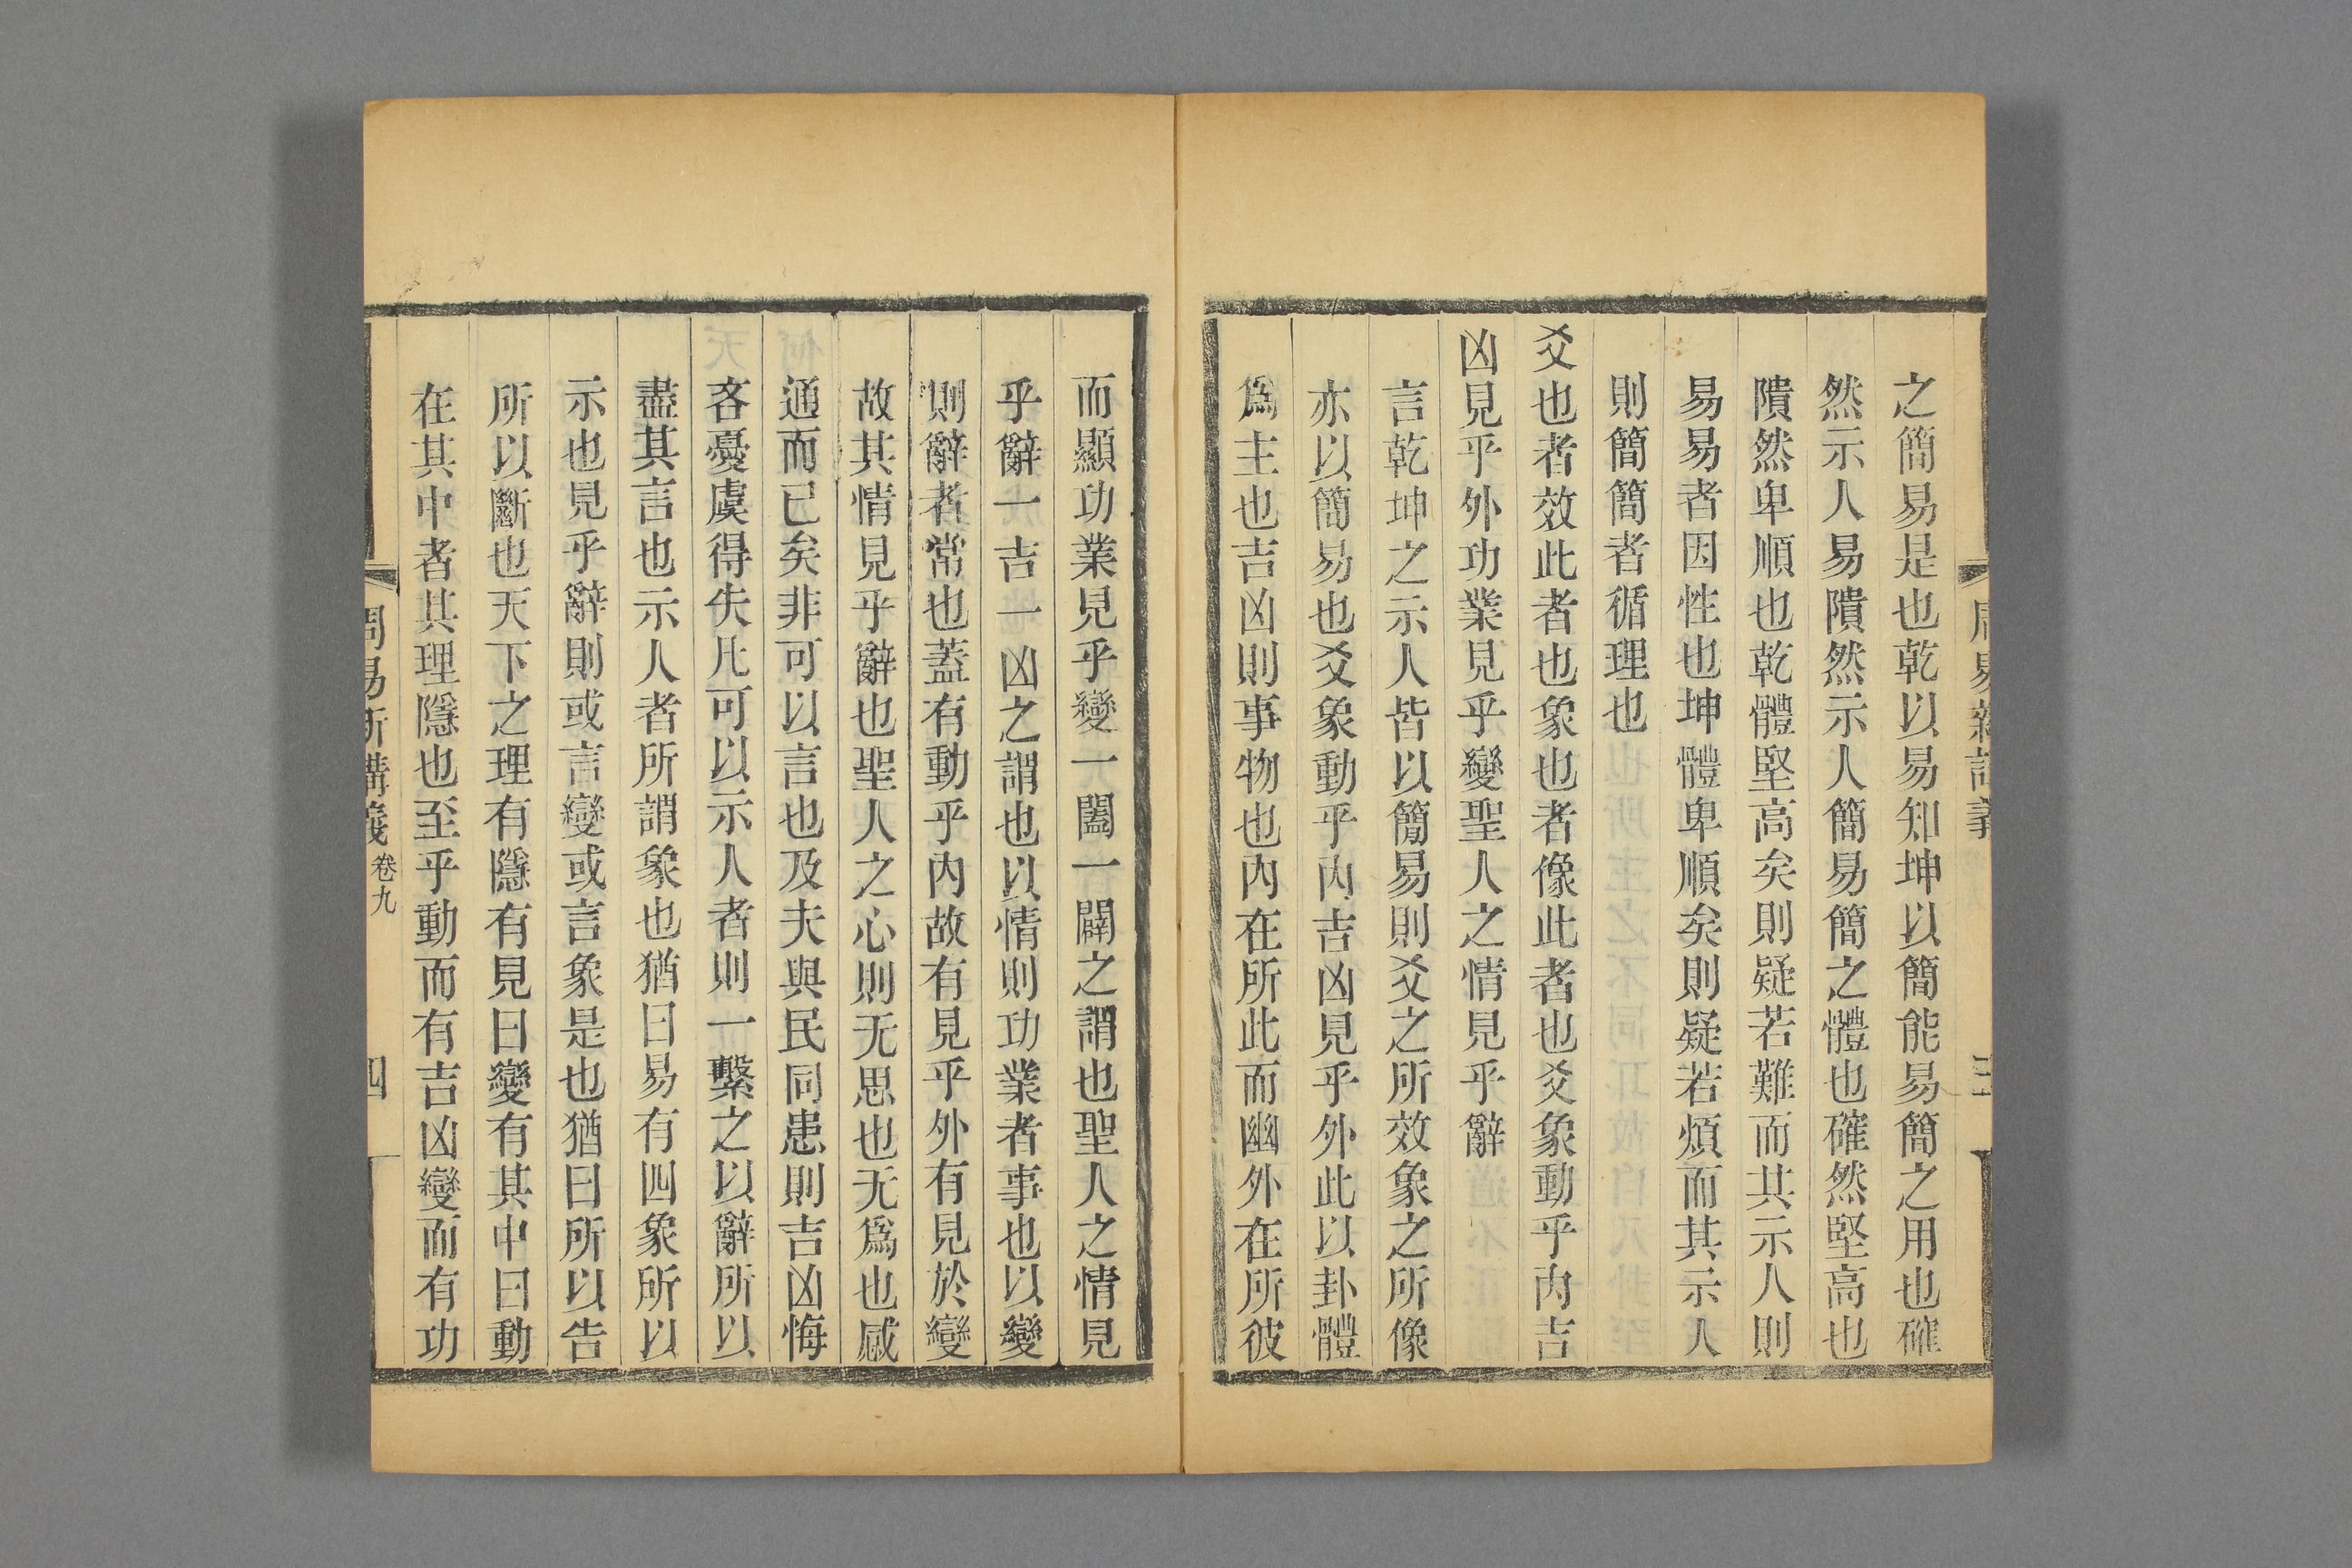 之簡易是也乾以易知坤以簡能易簡之用也確
然示人易隤然示人簡易簡之體也確然堅高也
隤然卑順也乾體堅高矣則疑若難而其示人則
易易者因性也坤體卑順矣則疑若煩而其示人
則簡簡者循理也
爻也者效此者也象也者像此者也爻象動乎內吉
凶見乎外功業見乎變聖人之情見乎辭
言乾坤之示人皆以簡易則爻之所效象之所像
亦以簡易也爻象動乎內吉凶見乎外此以卦體
爲主也吉凶則事物也內在所此而幽外在所彼
而顯功業見乎變一闔一闢之謂也聖人之情見
乎辭一吉一凶之謂也以情則功業者事也以變
則辭者常也蓋有動乎內故有見乎外有見於變
故其情見乎辭也聖人之心則无思也无爲也感
通而已矣非可以言也及夫與民同患則吉凶悔
吝憂虞得失凡可以示人者則一繫之以辭所以
盡其言也示人者所謂象也猶曰易有四象所以
示也見乎辭則或言變或言象是也猶曰所以告
所以斷也天下之理有隱有見曰變有其中曰動
在其中者其理隱也至乎動而有吉凶變而有功
卷九
四